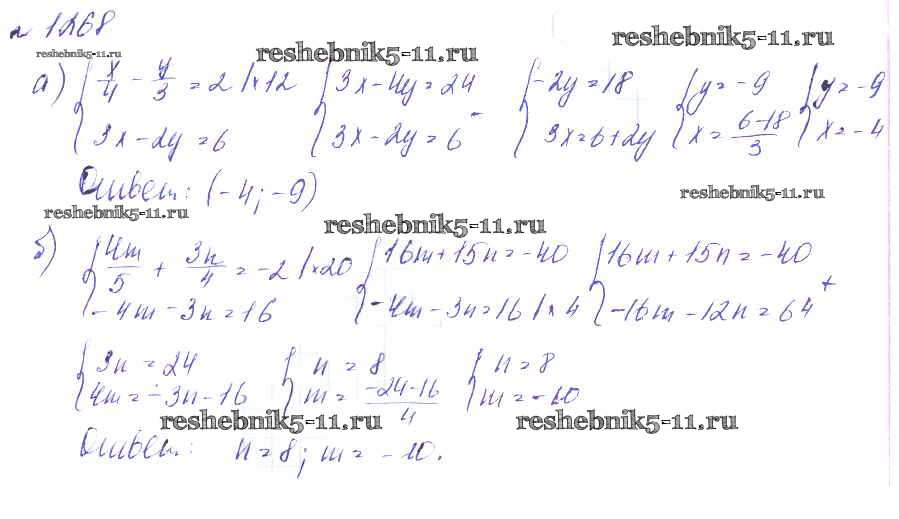 № 1268
reshebnik5-11.ru
reshebnik5-11.ru
reshebnik5-11.ru
а) { x/4 - y/3 = 2 | ×12 { 3x - 4y = 24 { -2y = 18 { y = -9 { y = -9
3x - 2y = 6 3x - 2y = 6 - 3x = 6 + 2y x = 6-18/3 x = -4
Ответ: (-4; -9)
reshebnik5-11.ru
reshebnik5-11.ru
reshebnik5-11.ru
б) { 4m/5 + 3n/4 = -2 | ×20 { 16m + 15n = -40 { 16m + 15n = -40
-4m - 3n = 16 -4m - 3n = 16 | ×4 -16m - 12n = 64 +
{ 3n = 24 { n = 8 { n = 8
4m = -3n - 16 m = -24-16/4 m = -10
reshebnik5-11.ru
reshebnik5-11.ru
Ответ: n = 8; m = -10.